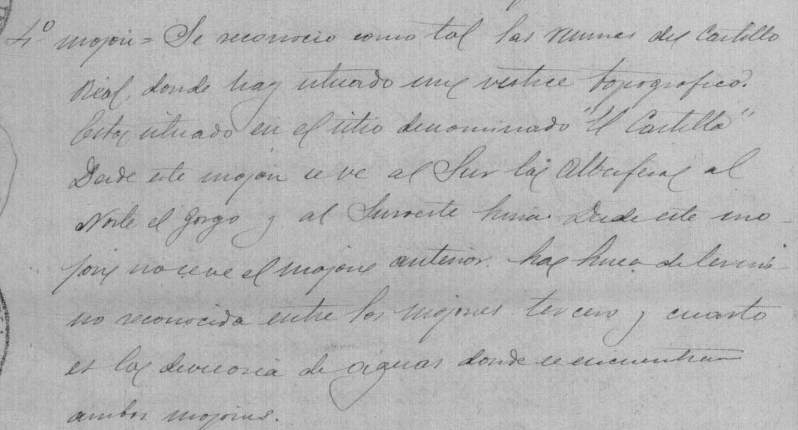 4º mojon = Se reconocio como tal las ruinas del Castillo
Real, donde hay situado un vertice topografico.
Esta situado en el sitio denominado "El Castillo"
Desde este mojon se ve al Sur las Albuferas al
Norte el Gorgo y al Suroeste . Desde este mo-
jon no se ve el mojon anterior. La linea de termi-
no reconocida entre los mojones tercero y cuarto
es la divisoria de aguas donde se encuentran
ambos mojones.